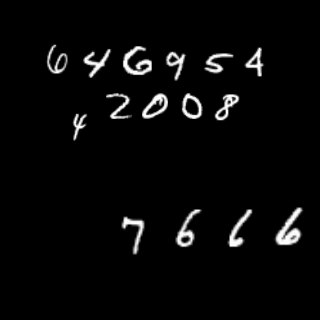 646954
42008
7666